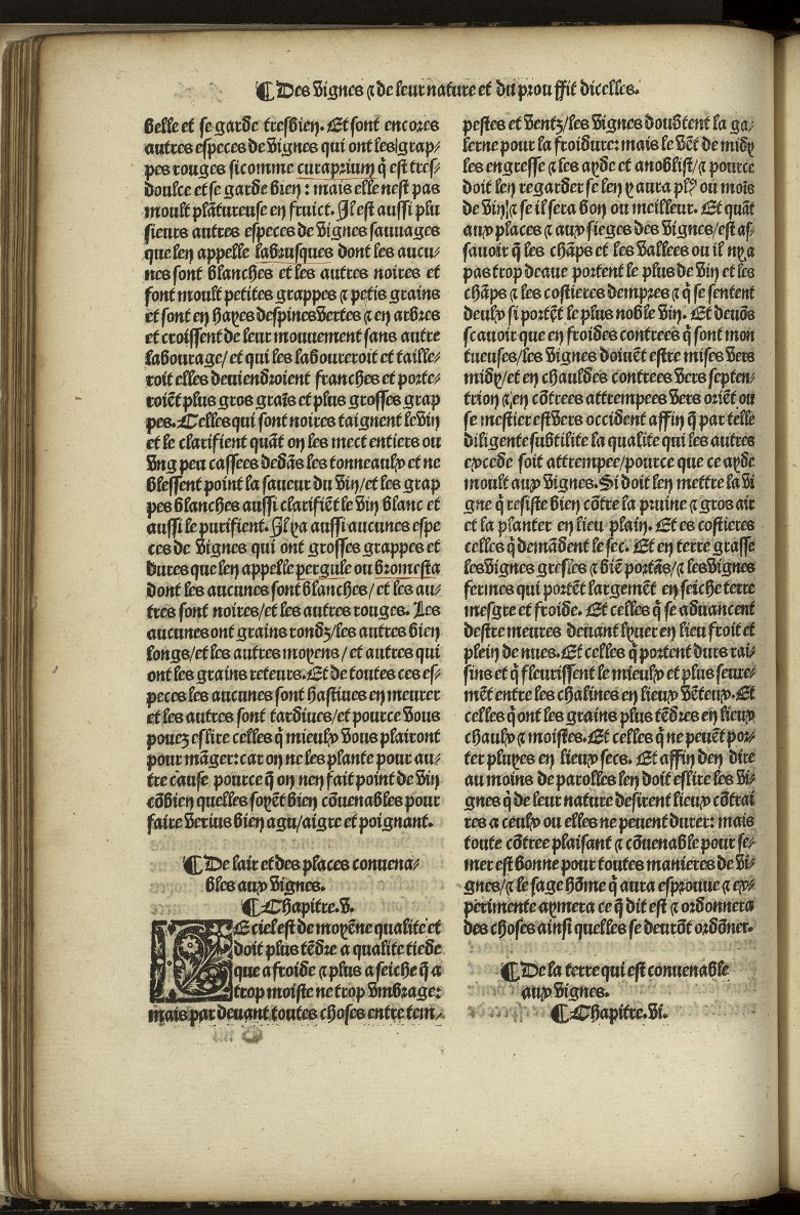 ¶ Des vignes ⁊ de leur nature et du prouffit dicelles.
belle et se garde tresbien. Et sont encores
autres especes de vignes qui ont les grap/
pes rouges sicomme curaprium q̃ est tres/
doulce et se garde bien : mais elle nest pas
moult plãtureuse en fruict. Il est aussi plu
sieurs autres especes de vignes sauuages
que len appelle labrusques dont les aucu/
nes sont blanches et les autres noires et
font moult petites grappes ⁊ petis grains
et sont en hayes despines vertes ⁊ en arbres
et croissent de leur mouuement sans autre
labourage/ et qui les laboureroit et taille/
roit elles deuiendroient franches et porte/
roiẽt plus gros graĩs et plus grosses grap
pes. Celles qui sont noires taignent le vin
et le clarifient quãt on les mect entiers ou
vng peu cassees dedãs les tonneaulx et ne
blessent point la saueur du vin/et les grap
pes blanches aussi clarifiẽt le vin blanc et
aussi le purifient. Il ya aussi aucunes espe
ces de vignes qui ont grosses grappes et
dures que len appelle pergule ou bromesta
dont les aucunes sont blanches/ et les au/
tres sont noires/et les autres rouges. Les
aucunes ont grains rondz/les autres bien
longs/et les autres moyens / et autres qui
ont les grains reteurs. Et de toutes ces es/
peces les aucunes sont hastiues en meurer
et les autres sont tardiues/et pource vous
pouez eslire celles q̃ mieulx vous plairont
pour mãger: car on ne les plante pour au/
tre cause pource q̃ on nen fait point de vin
cõbien quelles soyẽt bien cõuenables pour
faire verius bien agu/aigre et poignant.
¶ De lair et des places conuena/
bles aux vignes.
¶ Chapitre. v.
LE ciel est de moyẽne qualite et
doit plus tẽdre a qualite tiede
que a froide ⁊ plus a seiche q̃ a
trop moiste ne trop vmbrage:
mais par deuant toutes choses entre tem/
pestes et ventz/les vignes doubtent la ga/
lerne pour la froidure: mais le vẽt de midy
les engresse ⁊ les ayde et anoblist/⁊ pource
doit len regarder se len y aura plꝰ ou moĩs
de vin/⁊ se il sera bon ou meilleur. Et quãt
aux places ⁊ aux sieges des vignes/est as/
sauoir q̃ les chãps et les vallees ou il ny a
pas trop deaue portent le plus de vin et les
chãps ⁊ les costieres dempres ⁊ q̃ se sentent
deulx si portẽt le plus noble vin. Et deuõs
scauoir que en froides contrees q̃ sont mon
tueuses/les vignes doiuẽt estre mises vers
midy/et en chauldes contrees vers septen/
trion ⁊ en cõtrees attrempees vers oriẽt ou
se mestier est vers occident affin q̃ par telle
diligente subtilite la qualite qui les autres
excede soit attrempee/pource que ce ayde
moult aux vignes. Si doit len mettre la vi
gne q̃ resiste bien cõtre la pruine ⁊ gros air
et la planter en lieu plain. Et es costieres
celles q̃ demãdent le sec. Et en terre grasse
les vignes gresles ⁊ biẽ portãs/⁊ les vignes
fermes qui portẽt largemẽt en seiche terre
mesgre et froide. Et celles q̃ se aduancent
destre meures deuant lyuer en lieu froit et
plein de nues. Et celles q̃ portent durs rai/
sins et q̃ fleurissent le mieulx et plus seure/
mẽt entre les chalines en lieux vẽteux. Et
celles q̃ ont les grains plus tẽdres en lieux
chaulx ⁊ moistes. Et celles q̃ ne peuẽt por/
ter pluyes en lieux secs. Et affin den dire
au moins de parolles len doit eslire les vi/
gnes q̃ de leur nature desirent lieux cõtrai
res a ceulx ou elles ne peuent durer: mais
toute cõtree plaisant ⁊ cõuenable pour se/
mer est bonne pour toutes manieres de vi/
gnes/⁊ le sage hõme q̃ aura esprouue ⁊ ex/
perimente aymera ce q̃ dit est ⁊ ordonnera
des choses ainsi quelles se deurõt ordõner.
¶ De la terre qui est conuenable
aux vignes.
¶ Chapitre. vi.